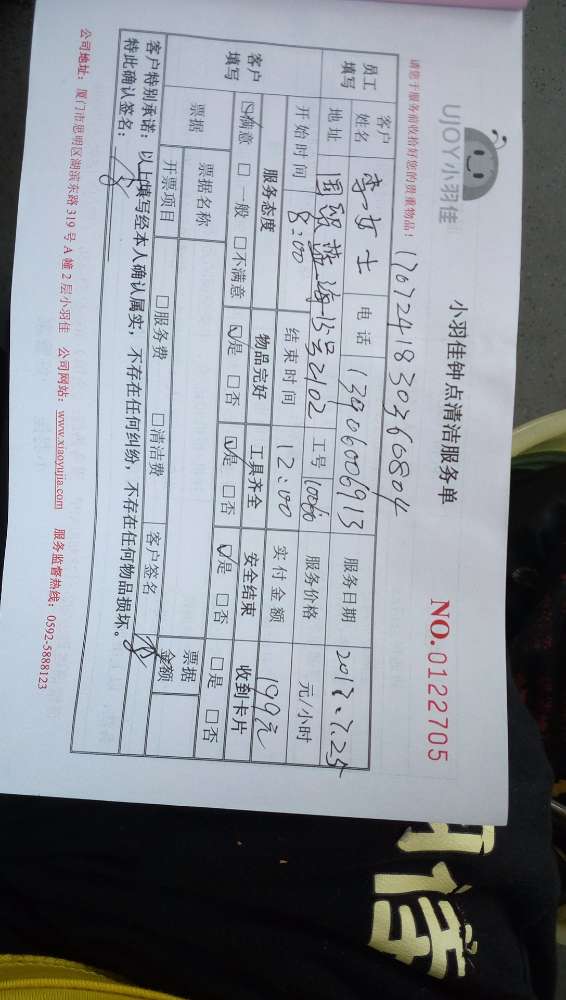 UJOY小羽佳
小羽佳钟点清洁服务单
NO.0122705
请您于服务前收拾好您的贵重物品！
1707241830360804
员工填写 客户姓名 李女士 电话 13906006913 服务日期 2017.7.25
地址 国贸蓝海15号2102 工号 10066 服务价格 元/小时
开始时间 8:00 结束时间 12:00 实付金额 199元
客户填写 服务态度 物品完好 工具齐全 安全结束 收到卡片
☑满意 □一般 □不满意 ☑是 □否 ☑是 □否 ☑是 □否 □是 □否
票据 票据名称 □服务费 □清洁费 客户签名 票据金额
开票项目
客户特别承诺：以上填写经本人确认属实，不存在任何纠纷，不存在任何物品损坏。
特此确认签名：
公司地址：厦门市思明区湖滨东路319号A幢2层小羽佳 公司网站：www.xiaoyujia.com 服务监督热线：0592-5888123
信